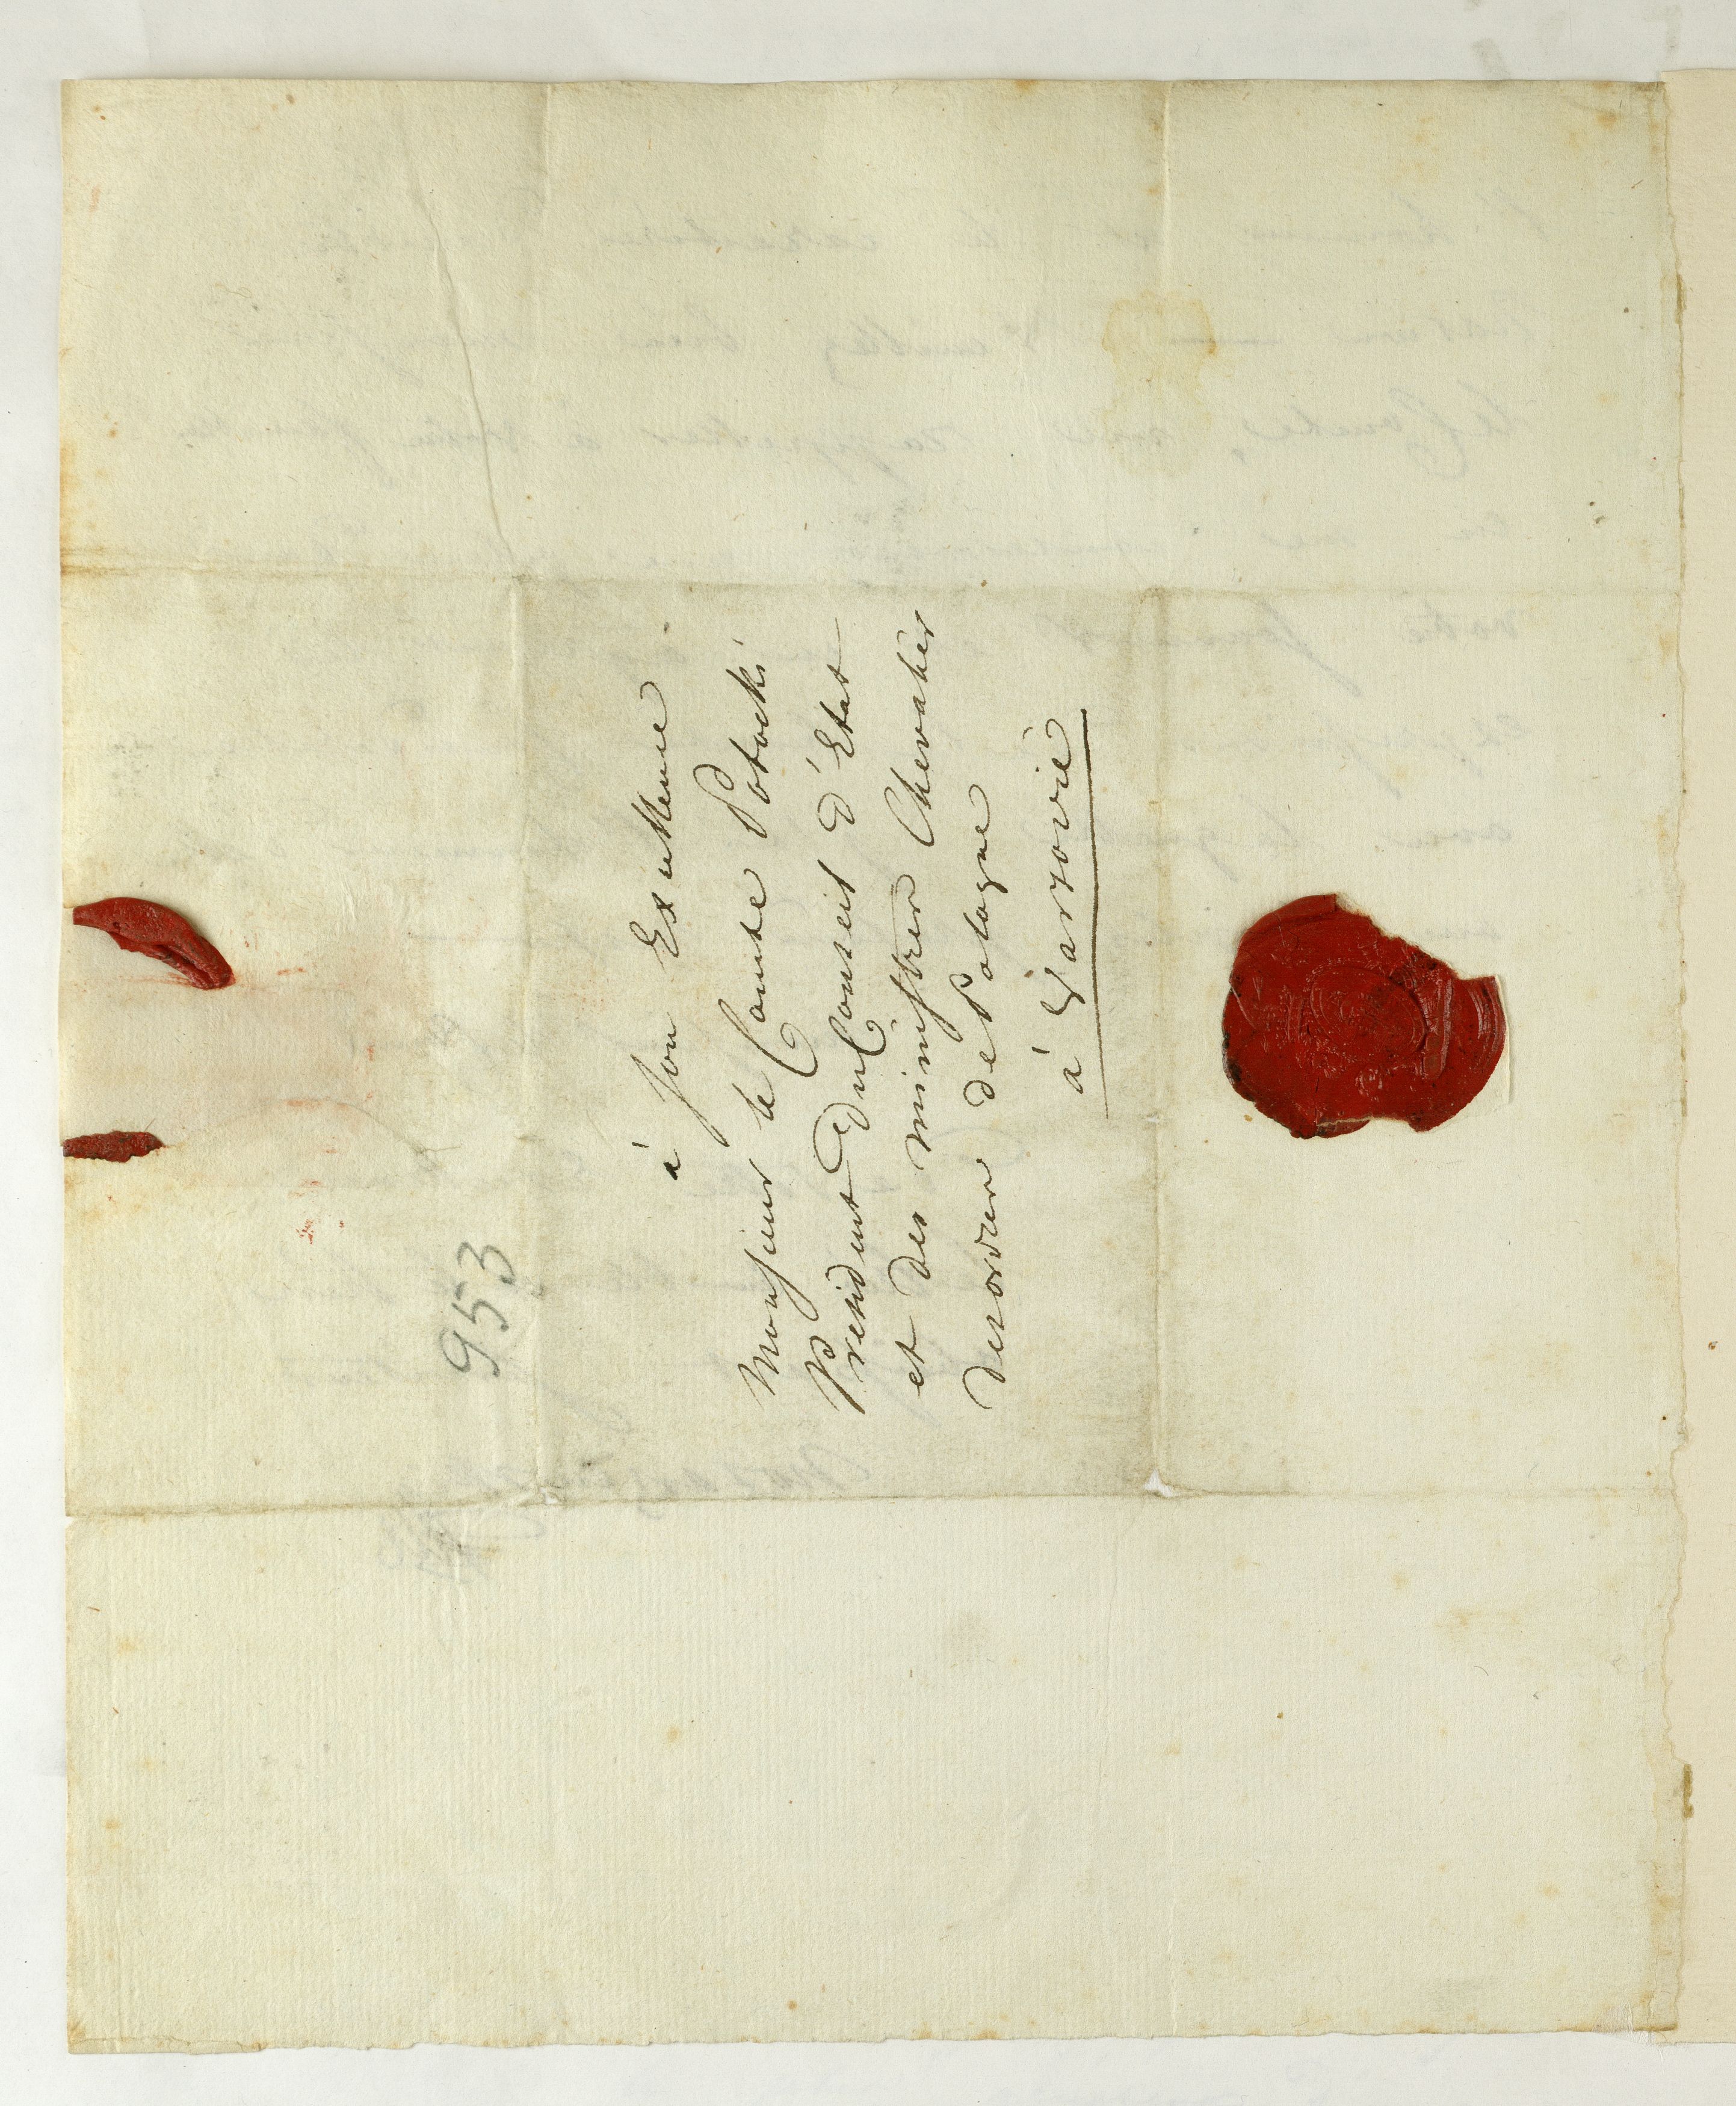 à Son Exellence
Monsieur le Comte Potocki
President du Conseil d'Etat
et des ministres Chevalier
des ordres de Pologne
à Varsovie
953